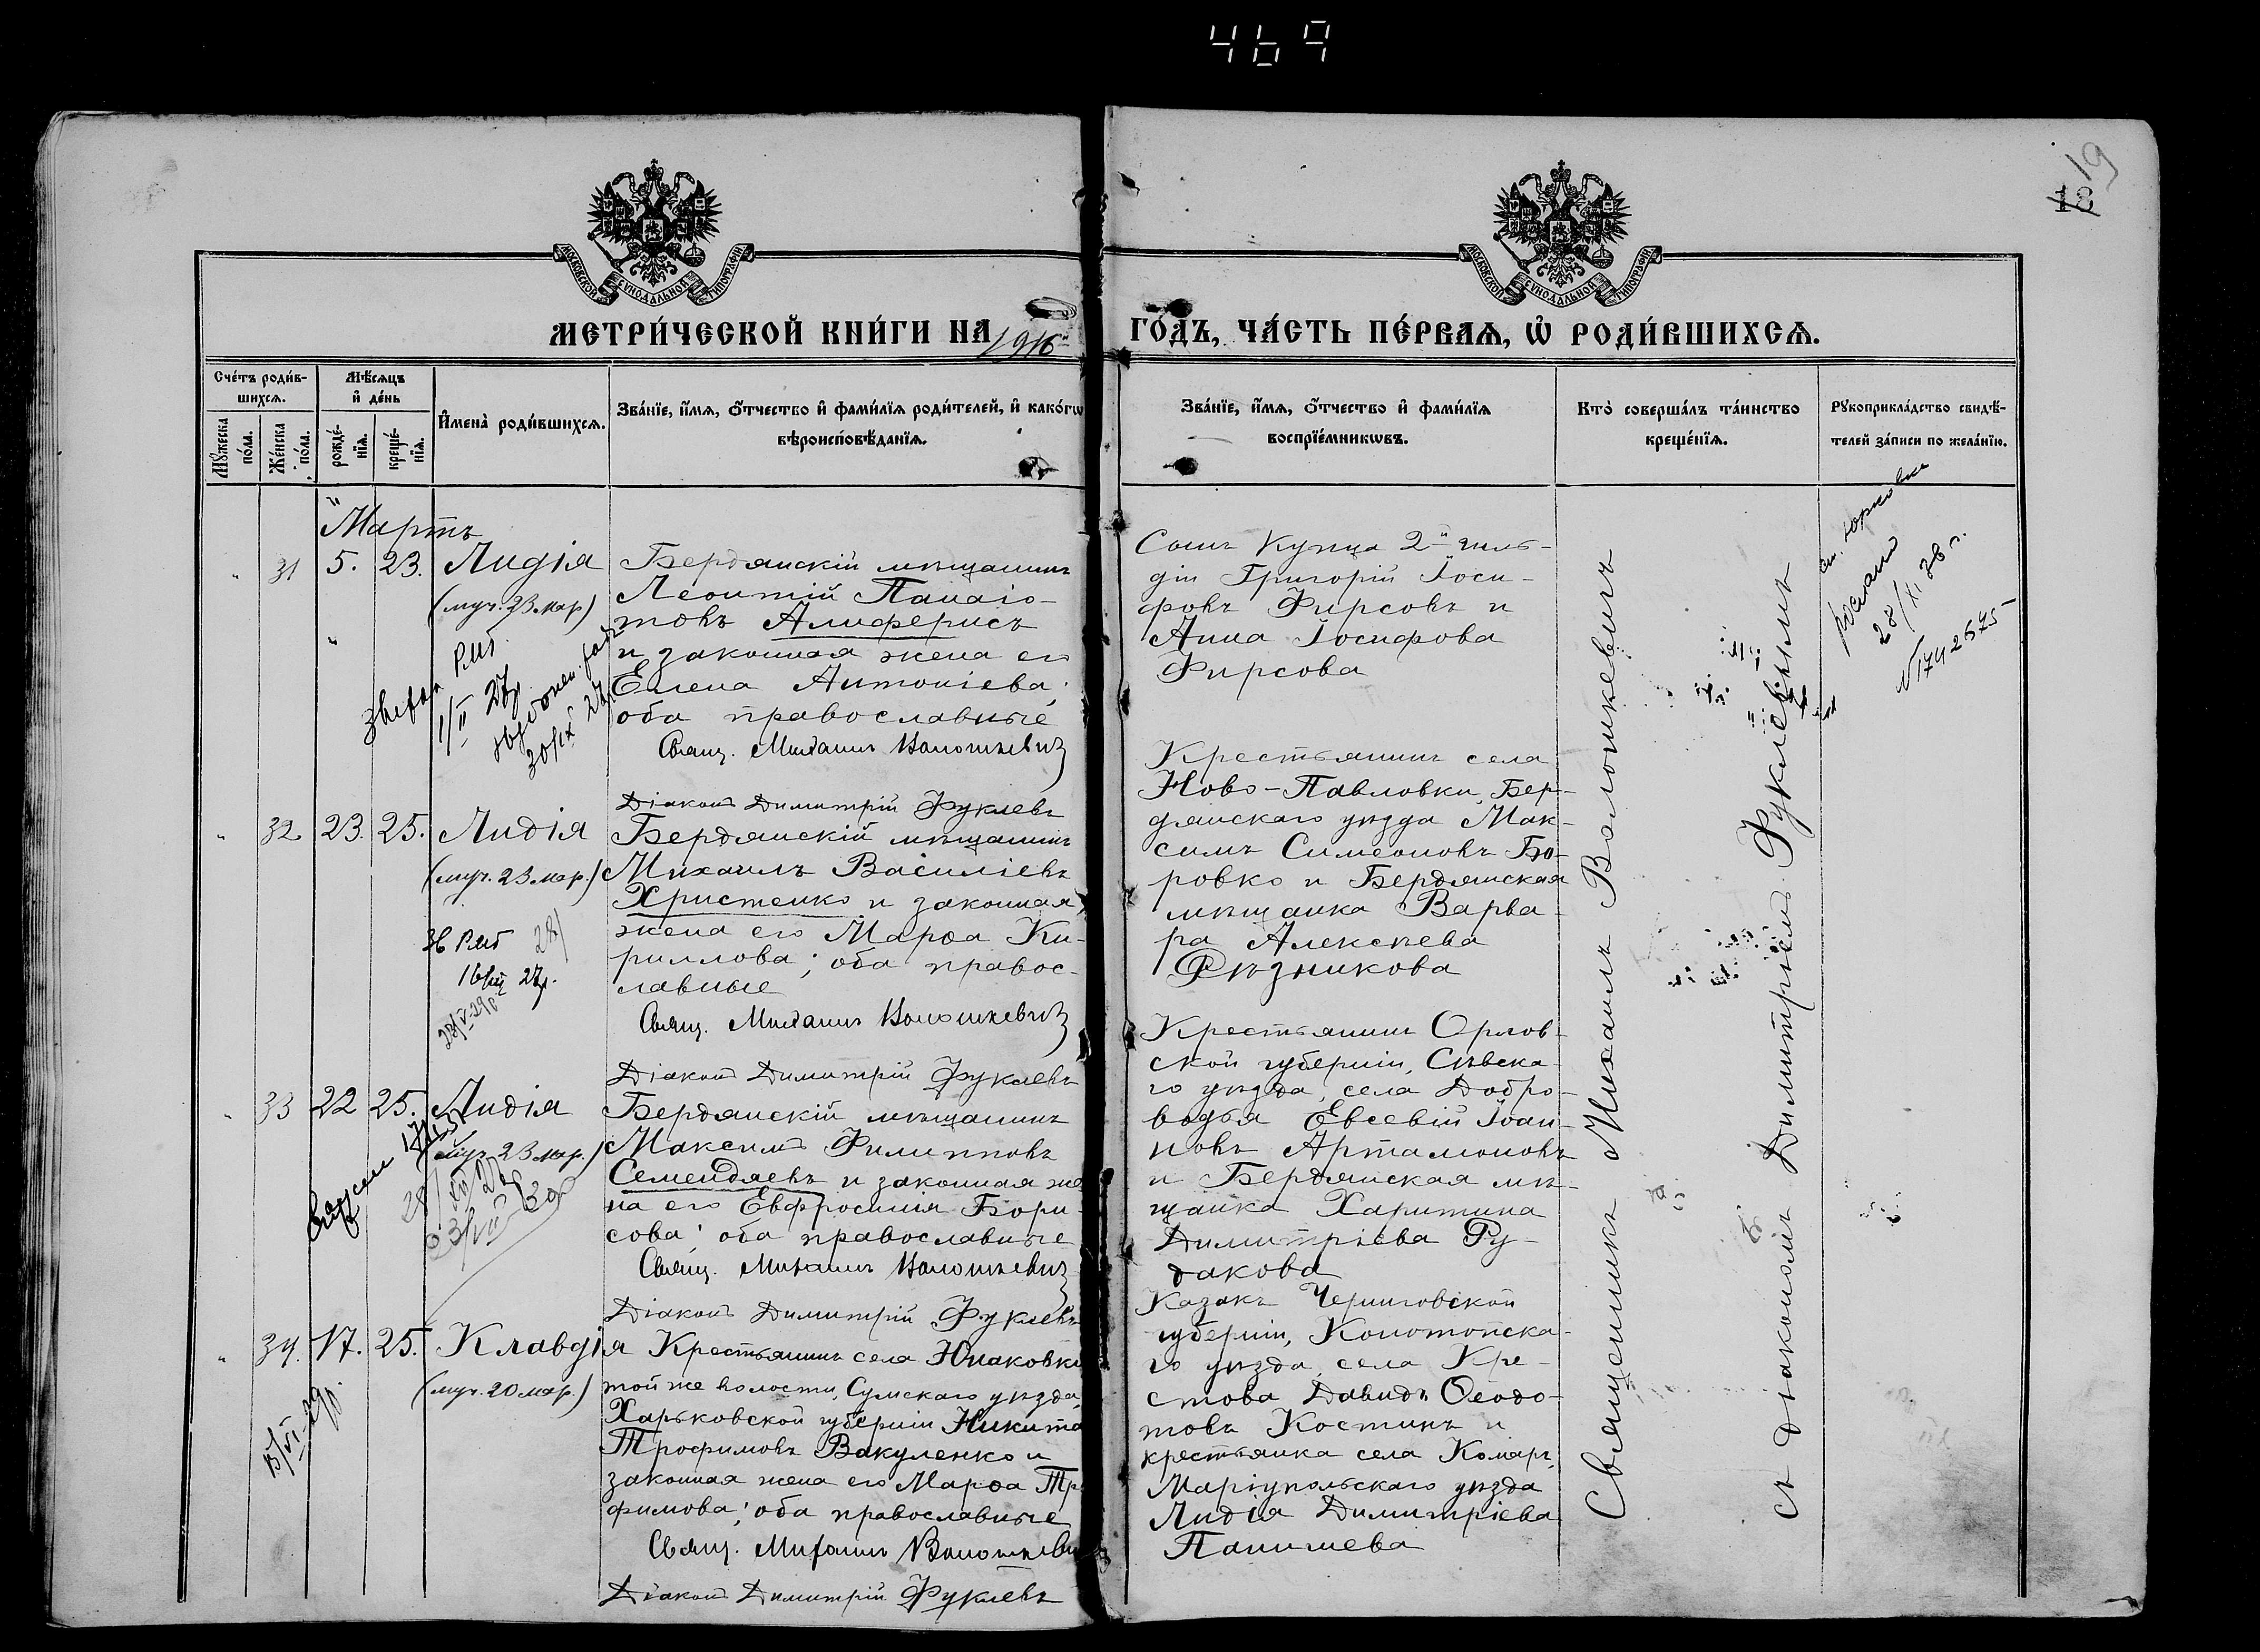 469
19
18
МОСКОВСКОЙ СѴНОДАЛЬНОЙ ТИПОГРАФІИ
МОСКОВСКОЙ СѴНОДАЛЬНОЙ ТИПОГРАФІИ
МЕТРИ́ЧЕСКОЙ КНИ́ГИ НА 1916й ГО́ДЪ, ЧА́СТЬ ПЕ́РВАѦ, Ѡ҆ РОДИ́ВШИХСѦ.
Сче́тъ роди́в-
шихсѧ.
Мꙋ́жеска по́ла.
Же́нска по́ла.
Мѣ́сѧцъ
и҆ де́нь
рожде́-
нїѧ.
креще́-
нїѧ.
И҆мена̀ роди́вшихсѧ.
Зва́нїе, и҆́мѧ, ѻ҆́тчество и҆ фами́лїѧ роди́телей, и҆ како́гѡ
вѣроисповѣ́данїѧ.
Зва́нїе, и҆́мѧ, ѻ҆́тчество и҆ фами́лїѧ
воспрїе́мникѡвъ.
Кто̀ соверша́лъ та́инство
креще́нїѧ.
Рꙋкоприкла́дство свидѣ́-
телей за́писи по жела́нїю.
Мартъ
31 5. 23. Лидія
(муч. 23 мар)
Бердянскій мѣщанинъ
Леонтій Панаіо-
товъ Алиферисъ
и законная жена его
Елена Антоніева;
оба православные
Свящ. Михаилъ Волошкевичъ
Діаконъ Димитрій Фуклевъ
Сынъ Купца 2й гиль-
діи Григорій Іоси-
фовъ Фирсовъ и
Анна Іосифова
Фирсова
РИБ
1/II 27р.
30/IX 27р.
28/XI 38 г.
N1742675
32 23. 25. Лидія
(муч. 23 мар.)
Бердянскій мѣщанинъ
Михаилъ Василіевъ
Христенко и законная
жена его Марѳа Ки-
риллова; оба правос-
лавные
Свящ. Михаилъ Волошкевичъ
Діаконъ Димитрій Фуклевъ
Крестьянинъ села
Ново-Павловки, Бер-
дянскаго уѣзда Мак-
симъ Симеоновъ Бо-
ровко и Бердянская
мѣщанка Варва-
ра Алексѣева
Рѣзникова
27р.
33 22 25. Лидія
(муч. 23 мар.)
Бердянскій мѣщанинъ
Максимъ Филипповъ
Семендяевъ и законная же
на его Евфросинія Бори-
сова; оба православные
Свящ. Михаилъ Волошкевичъ
Діаконъ Димитрій Фуклевъ
Крестьянинъ Орлов-
ской губерніи, Сѣвска-
го уѣзда, села Добро-
водья Евсевій Іоан-
новъ Артамоновъ
и Бердянская мѣ-
щанка Харитина
Димитріева Ру-
дакова
34. 17. 25. Клавдія
(муч. 20 мар.)
Крестьянинъ села Юнаковки
той же волости, Сумскаго уѣзда,
Харьковской губерніи Никита
Трофимовъ Вакуленко и
законная жена его Марѳа Тр
фимова; оба православные
Свящ. Михаилъ Волошкеви
Діаконъ Димитрій Фуклевъ
Казакъ Черниговской
губерніи, Конотопска-
го уѣзда, села Кре-
стова Давидъ Ѳеодо-
товъ Костинъ и
крестьянка села Комаръ,
Маріупольскаго уѣзда
Лидія Димитріева
Папишева
Священникъ Михаилъ Волошкевичъ
съ діакономъ Димитріемъ Фуклевымъ